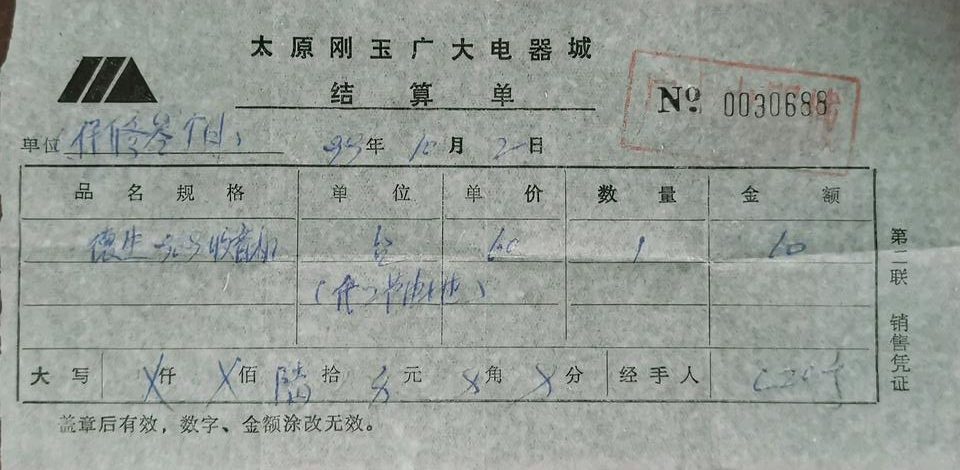 太原刚玉广大电器城
结算单
№ 0030688
单位(保修叁个月) 99年10月2日
品名规格 单位 单价 数量 金额
德生 收音机 台 60 1 60
(带 节电池)
大写 X仟 X佰 陆拾 元 X角 X分 经手人
盖章后有效，数字、金额涂改无效。
第二联 销售凭证